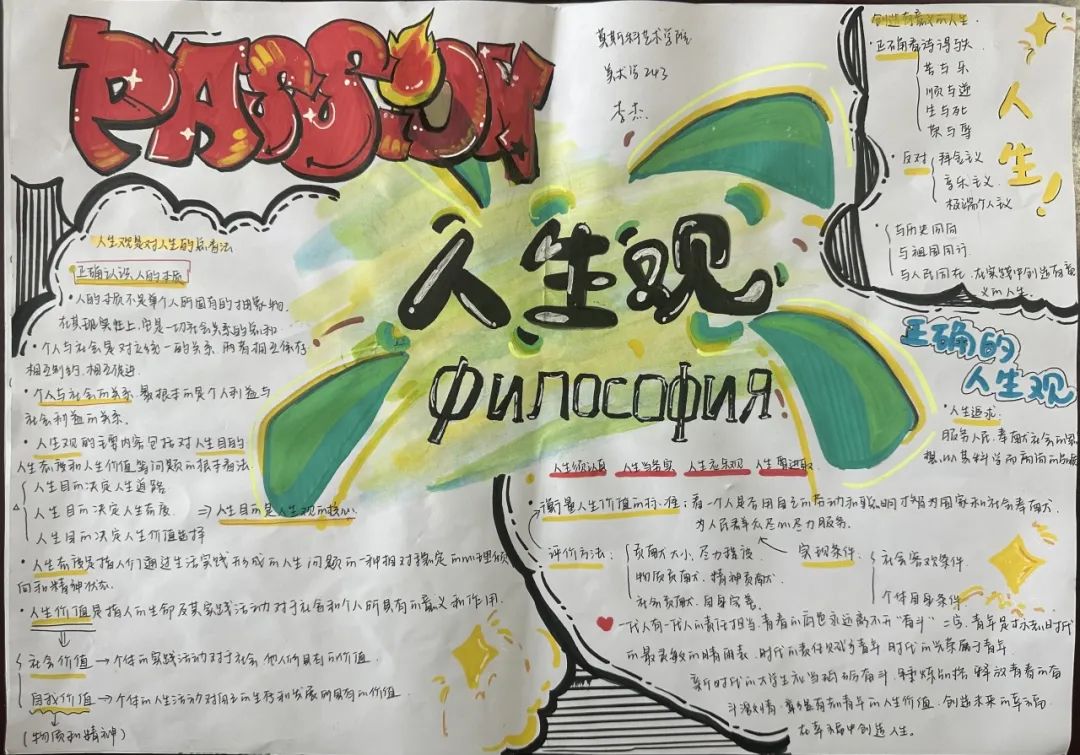 PASSION
莫斯科艺术学院
美术学243
李杰
人生观
философия
人生观是对人生的总看法
正确认识人的本质
• 人的本质不是单个人所固有的抽象物,
在其现实性上,它是一切社会关系的总和.
• 个人与社会是对立统一的关系,两者相互依存
相互制约,相互促进.
• 个人与社会的关系,最根本的是个人利益与
社会利益的关系.
• 人生观的主要内容包括对人生目的
人生态度和人生价值等问题的根本看法.
人生目的决定人生道路
人生目的决定人生态度 ⇒ 人生目的是人生观的核心
人生目的决定人生价值选择
• 人生态度是指人们通过生活实践形成的人生问题的一种相对稳定的心理倾
向和精神状态.
• 人生价值是指人的生命及其实践活动对于社会和个人所具有的意义和作用.
社会价值 → 个体的实践活动对于社会 他人所具有的价值.
自我价值 → 个体的人生活动对自己的生存和发展所具有的价值.
(物质和精神)
创造有意义的人生
• 正确看待得与失
苦与乐
顺与逆
生与死
荣与辱
• 反对 拜金主义
享乐主义
极端个人主义
• 与历史同向
与祖国同行
与人民同在,在实践中创造有意
义的人生.
人生!
正确的
人生观
• 人生追求
服务人民,奉献社会的思
想,以其科学而高尚的品质
人生须认真 人生当务实 人生应乐观 人生要进取
衡量人生价值的标准:看一个人是否用自己的劳动和聪明才智为国家和社会奉献,
为人民群众尽心尽力服务.
评价方法: 贡献大小,尽力程度
物质贡献,精神贡献
社会贡献,自身完善
实现条件 社会客观条件
个体自身条件
一代人有一代人的责任担当,青春的底色永远离不开“奋斗”二字,青年是标志时代
的最灵敏的晴雨表,时代的责任赋予青年 时代的光荣属于青年.
新时代的大学生应当砥砺奋斗,锤炼品格 释放青春的奋
斗激情
人生价值,创造未来的幸福,
在幸福中创造人生。